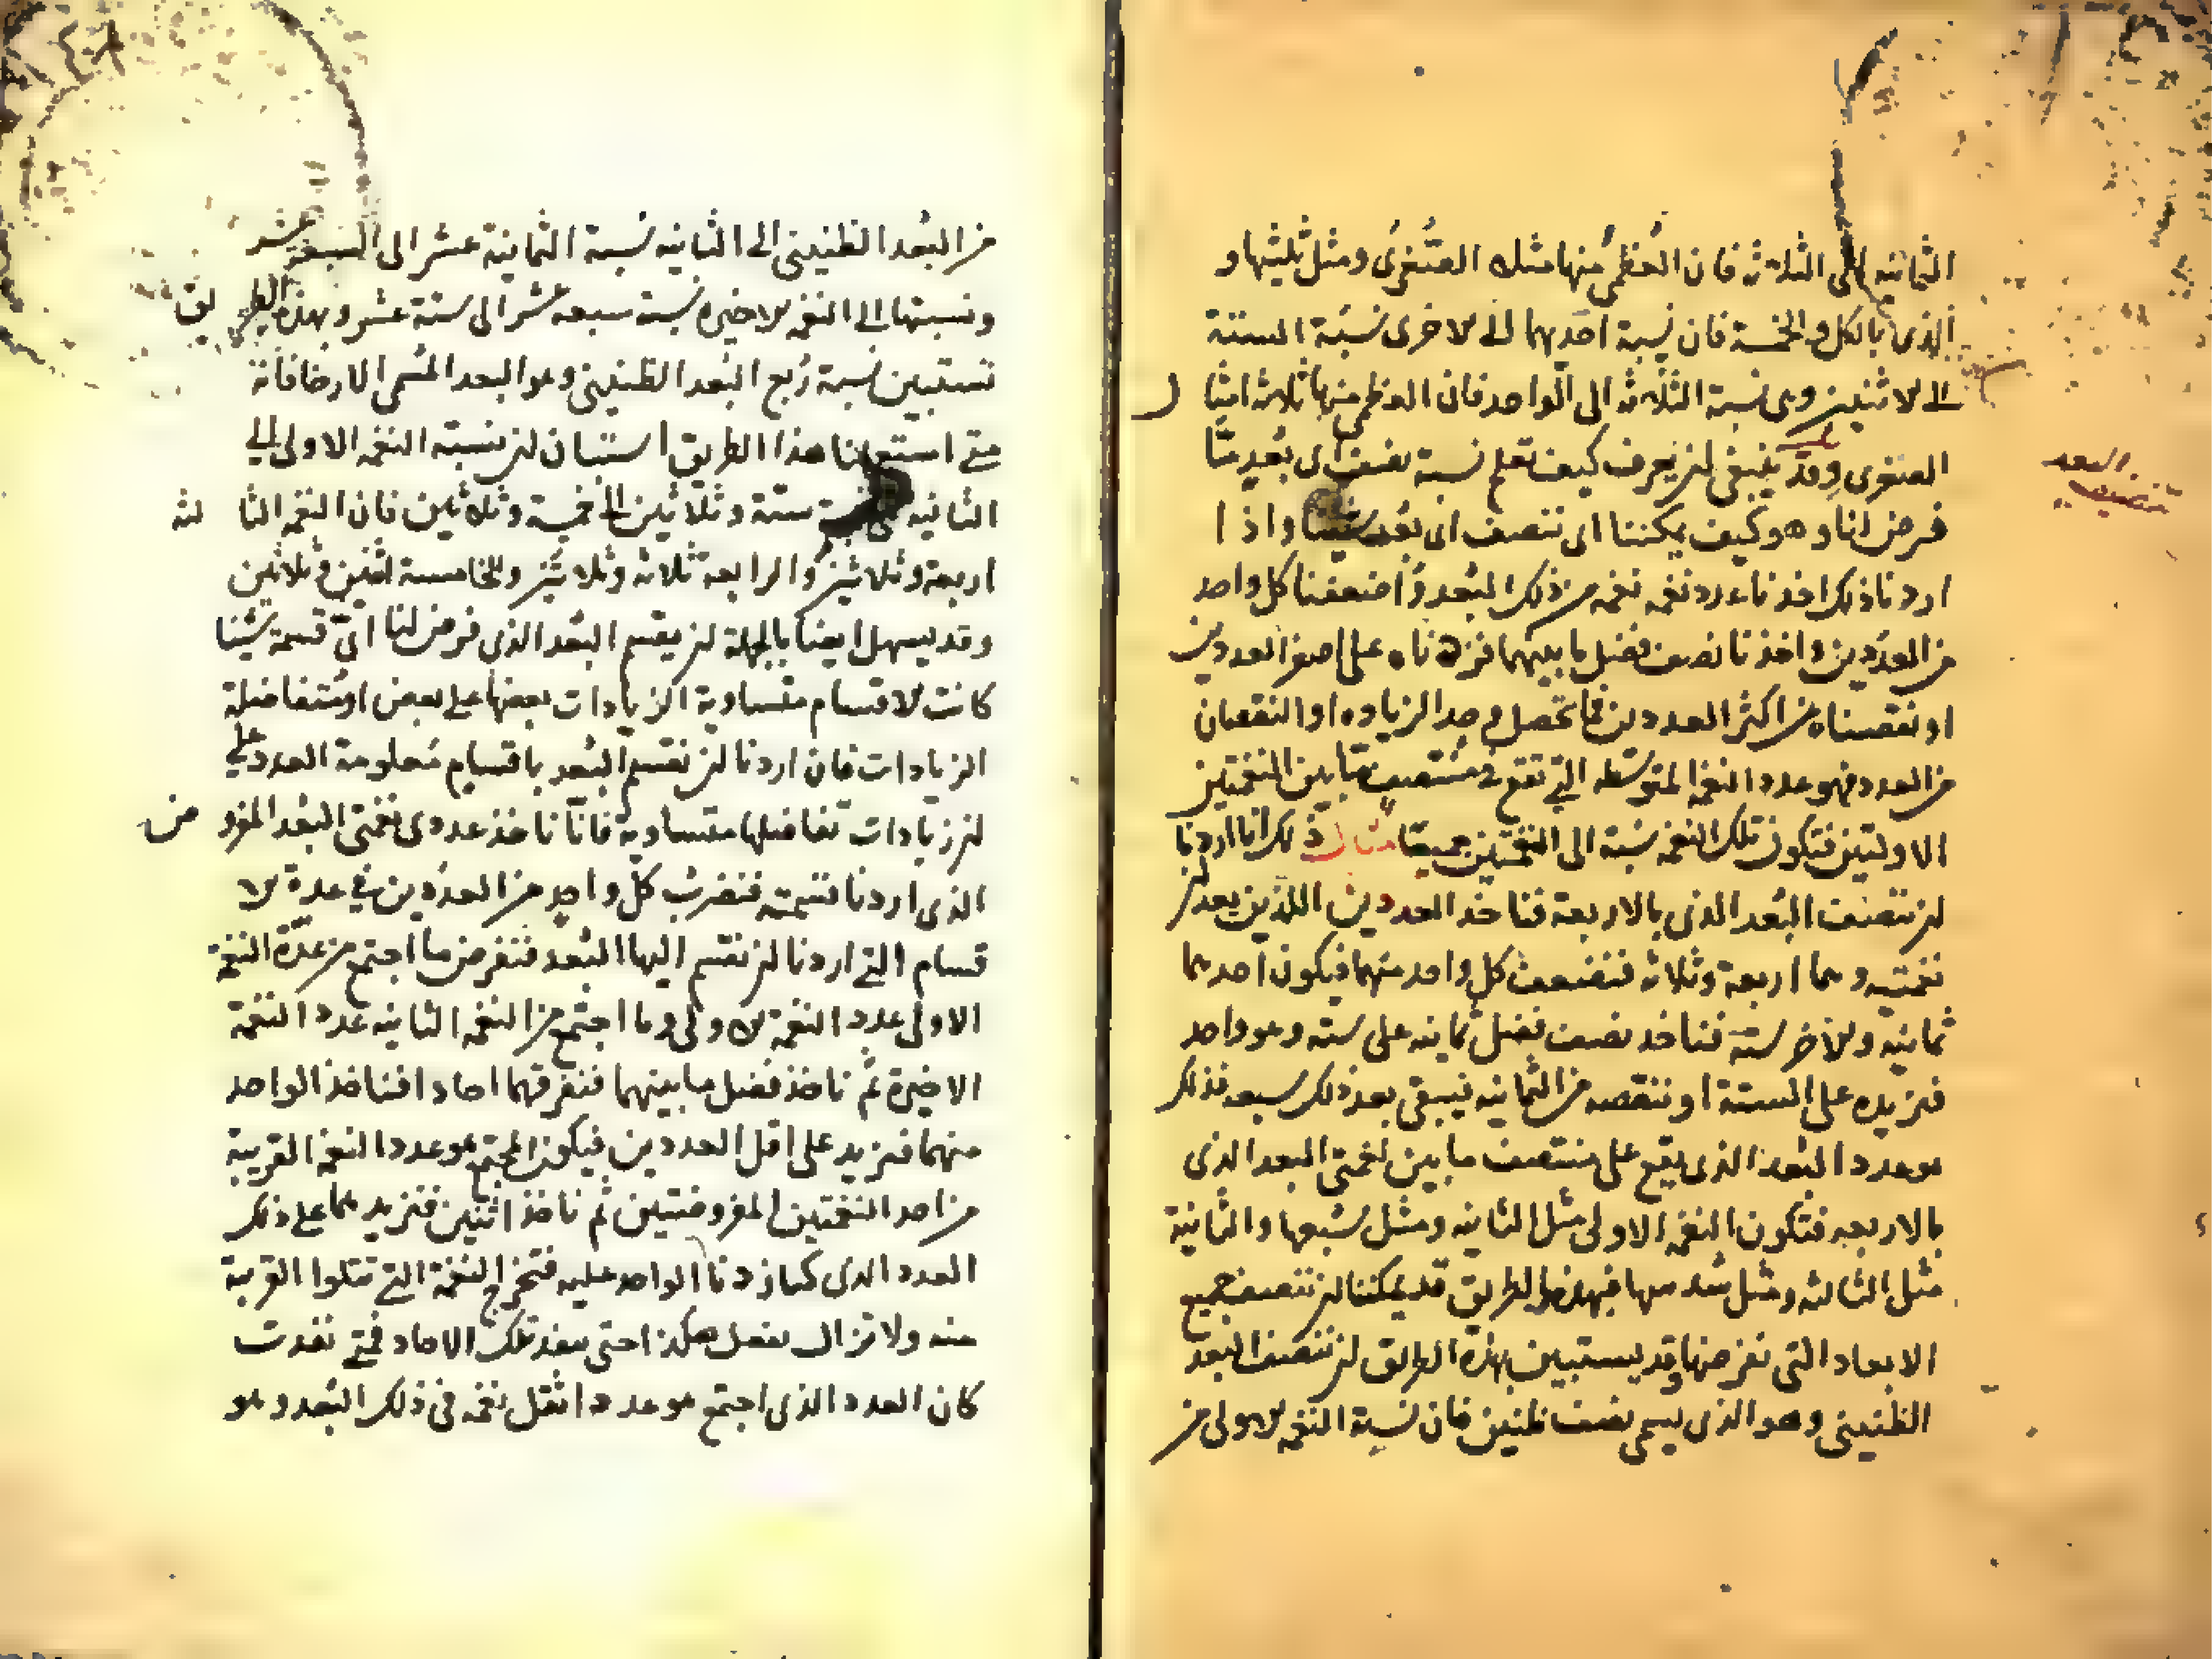 الثمانيه الى الثلاثة فان العظمى منها مثلا الصغرى ومثل ثلثيها و
الذى بالكل والخمسة فان نسبة احديهما الى الاخرى نسبة الستة
الى الاثنين وهى نسبة الثلاثة الى الواحد فان العظمى منها ثلاثة امثا ل
الصغرى وقد ينبغى ان يعرف كيف تعلم نسبة نصف اى بعد متا
تنصيف البعد
فرض لنا وهو كيف يمكننا ان ننصف اى بعد شينا واذا
اردنا ذلك اخذنا عدد نغمه نغمه من ذلك البعد واضعفنا كل واحد
من العددين واخذنا نصف فضل ما بينهما فزدناه على اصغر العددين
او نقصناه من اكثر العددين فما تحصل وجد الزياده او النقصان
من العدد فهو عدد النغمه المتوسطه التى تقع فى منتصف ما بين النغمتين
الاولتين فتكون تلك النغمه نسبة الى النغمتين جميعا مثال ذلك انا اردنا
ان ننصف البعد الذى بالاربعة فناخذ العددين اللذين يعدان
نغمتيه وهما اربعة وثلاثه فنضعف كل واحد منهما فيكون احدهما
ثمانيه والاخر ستة فناخذ نصف فضل ثمانيه على سته وهو واحد
فنزيده على الستة او ننقصه من الثمانيه فيبقى بعد ذلك سبعه فذلك
هو عدد البعد الذى يقع على منتصف ما بين نغمتى البعد الذى
بالاربعه فتكون النغمه الاولى مثل الثانيه ومثل سبعها والثانية
مثل الثالثه ومثل سدسها فبهذا الطريق قد يمكننا ان ننصف جميع
الابعاد التى نفرضها وقد يستبين بهذه الطريق ان ننصف البعد
الطنينى وهو الذى يسمى نصف طنين فان نسبة النغمه الاولى من
من البعد الطنينى الى الثانيه نسبة الثمانية عشر الى السبعة عشر
ونسبتها الى النغمه الاخيره نسبة سبعه عشر الى ستة عشر وبهذه الطريق
تستبين نسبة ربع البعد الطنينى وهو البعد المسمى الارخا فانه
متى استعملنا هذا الطريق استبان ان نسبة النغمه الاولى الى
الثانيه نسبة ستة وثلاثين الى خمسة وثلاثين فان النغمه الثالثه
اربعة وثلاثين والرابعه ثلاثه وثلاثين والخامسة اثنين وثلاثين
وقد يسهل ايضا بالجملة ان يقسم البعد الذى فرض لنا اىّ قسمة شينا
كانت الاقسام متساوية الزيادات بعضها على بعض او متفاضلة
الزيادات فان اردنا ان نقسم البعد باقسام معلومة العدد على
ان زيادات تفاضلها متساوية فانا ناخذ عددى نغمتى البعد المفروض
الذى اردنا قسمته فنضرب كل واحد من العددين فى عدة الا
قسام التى اردنا ان نقسم اليها البعد فنفرض ما اجتمع من عدة النغمة
الاولى عدد النغمة الاولى وما اجتمع من النغمه الثانيه عدد النغمة
الاخيرة ثم ناخذ فضل ما بينهما فنفرقهما احادا فناخذ الواحد
منهما فنزيد على اقل العددين فيكون المجتمع هو عدد النغمه القريبة
من احد النغمتين المفروضتين ثم ناخذ اثنين فنزيدهما على ذلك
العدد الذى كنا زدنا الواحد عليه فتخرج النغمة التى تتلوا القريبة
منه ولا تزال نفعل هكذا حتى ينفد تلك الاحاد فمتى نفدت
كان العدد الذى اجتمع هو عدد اثقل نغمه فى ذلك البعد وهو